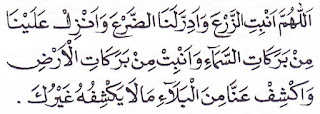 اَللّٰهُمَّ اَنْبِتِ الزَّرْعَ وَاَدِرَّلَنَا الضَّرْعَ وَاَنْزِلْ عَلَيْنَا
مِنْ بَرَكَاتِ السَّمَآءِ وَاَنْبِتْ مِنْ بَرَكَاتِ الْاَرْضِ
وَاكْشِفْ عَنَّا مِنَ الْبَلَآءِ مَالَا يَكْشِفُهُ غَيْرُكَ.